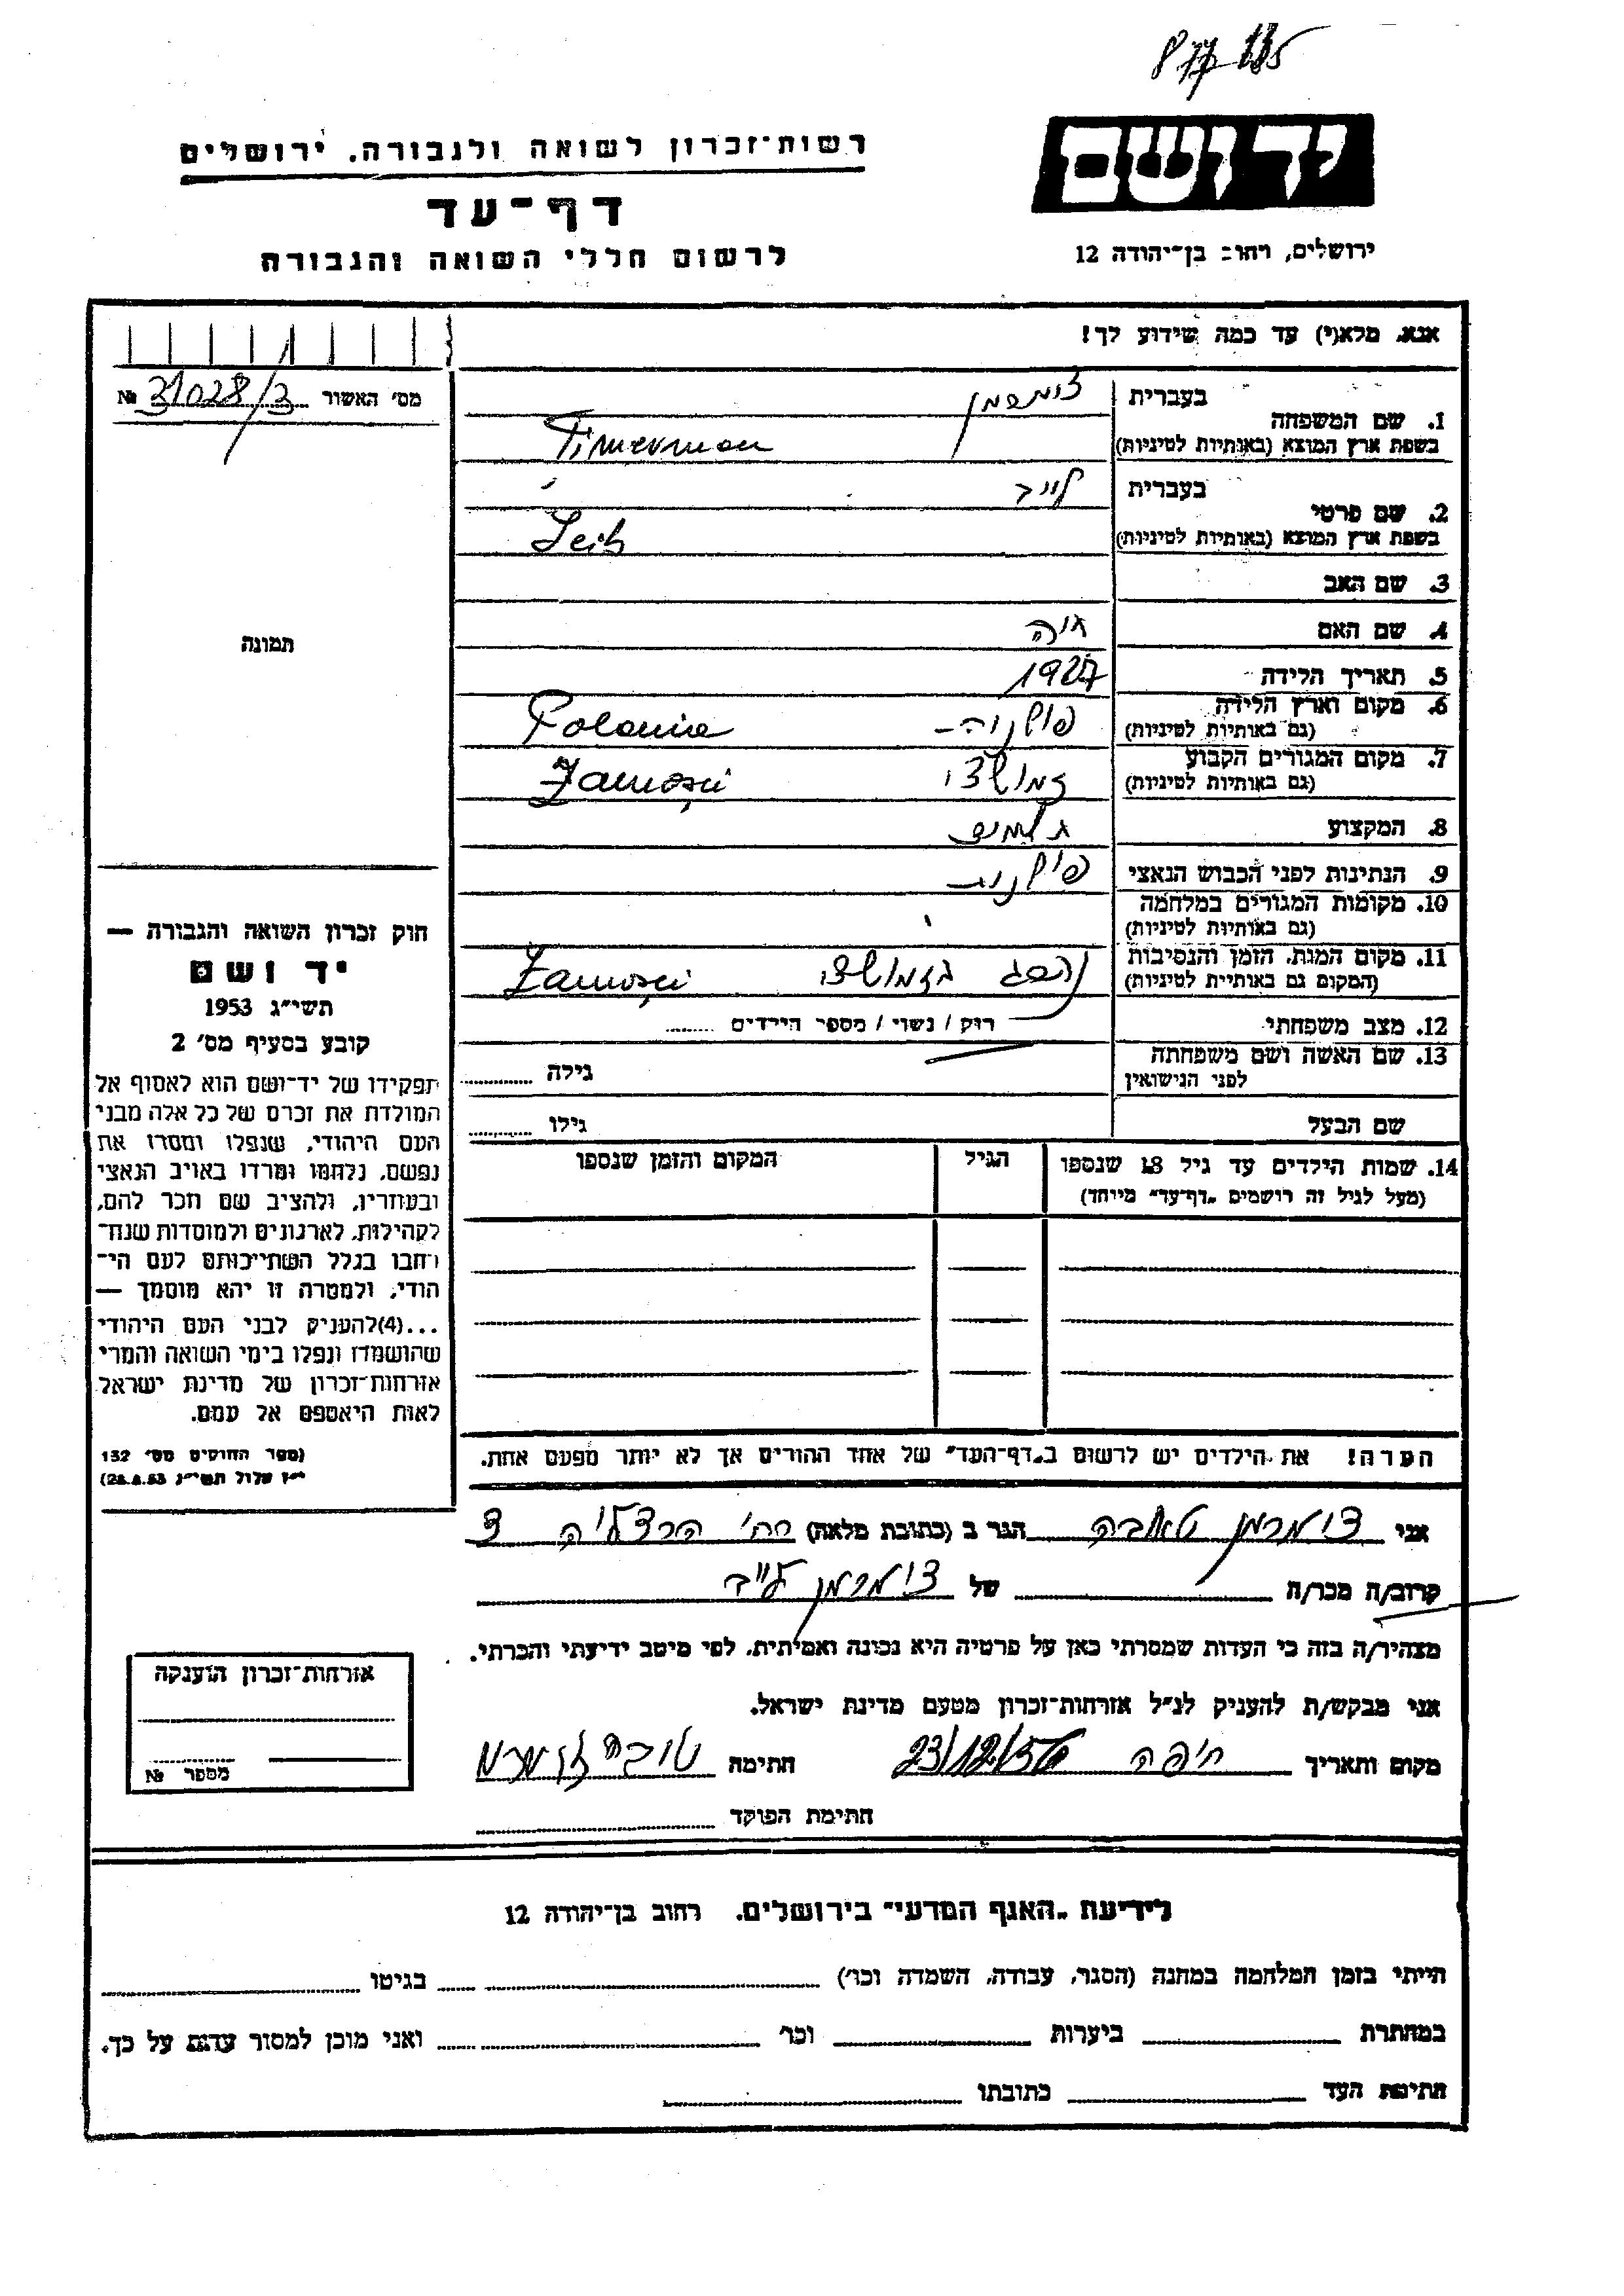 877 135
יד ושם
רשות־זכרון לשואה ולגבורה, ירושלים
דף־עד
ירושלים, רחוב בן־יהודה 12
לרשום חללי השואה והגבורה
אנא, מלא(י) עד כמה שידוע לך!
מס׳ האשור 31028/3 №
1. שם המשפחה
בעברית
בשפת ארץ המוצא (באותיות לטיניות) Timerman
2. שם פרטי
בעברית לייב
בשפת ארץ המוצא (באותיות לטיניות) Leib
3. שם האב
4. שם האם חיה
5. תאריך הלידה 1927
6. מקום וארץ הלידה
(גם באותיות לטיניות) פולניה– Polania
7. מקום המגורים הקבוע
(גם באותיות לטיניות) Zamosci
8. המקצוע
9. הנתינות לפני הכבוש הנאצי
10. מקומות המגורים במלחמה
(גם באותיות לטיניות)
11. מקום המות, הזמן והנסיבות
(המקום גם באותיות לטיניות) Zamosci
12. מצב משפחתי רווק / נשוי / מספר הילדים
13. שם האשה ושם משפחתה
לפני הנישואין גילה
שם הבעל גילו
14. שמות הילדים עד גיל 18 שנספו
(מעל לגיל זה רושמים „דף־עד״ מיוחד)
הגיל
המקום והזמן שנספו
הערה! את הילדים יש לרשום ב„דף־העד״ של אחד ההורים אך לא יותר מפעם אחת.
תמונה
חוק זכרון השואה והגבורה —
יד ושם
תשי״ג 1953
קובע בסעיף מס׳ 2
תפקידו של יד־ושם הוא לאסוף אל
המולדת את זכרם של כל אלה מבני
העם היהודי, שנפלו ומסרו את
נפשם, נלחמו ומרדו באויב הנאצי
ובעוזריו, ולהציב שם וזכר להם,
לקהילות, לארגונים ולמוסדות שנח־
רבו בגלל השתייכותם לעם הי־
הודי, ולמטרה זו יהא מוסמך —
...(4)להעניק לבני העם היהודי
שהושמדו ונפלו בימי השואה והמרי
אזרחות־זכרון של מדינת ישראל
לאות היאספם אל עמם.
(ספר החוקים מס׳ 132
י״ז אלול תשי״ג 28.8.53)
אני צימרמן הגר ב (כתובת מלאה) רח׳ הרצליה
קרוב/ה מכר/ה של צימרמן לייב
מצהיר/ה בזה כי העדות שמסרתי כאן על פרטיה היא נכונה ואמיתית, לפי מיטב ידיעתי והכרתי.
אני מבקש/ת להעניק לנ״ל אזרחות־זכרון מטעם מדינת ישראל.
מקום ותאריך חיפה 23/12/56 חתימה טובה
חתימת הפוקד
אזרחות־זכרון הוענקה
מספר №
לידיעת „האגף המדעי״ בירושלים. רחוב בן־יהודה 12
הייתי בזמן המלחמה במחנה (הסגר, עבודה, השמדה וכו׳) בגיטו
במחתרת ביערות וכו׳ ואני מוכן למסור עדות על כך.
חתימת העד כתובתו